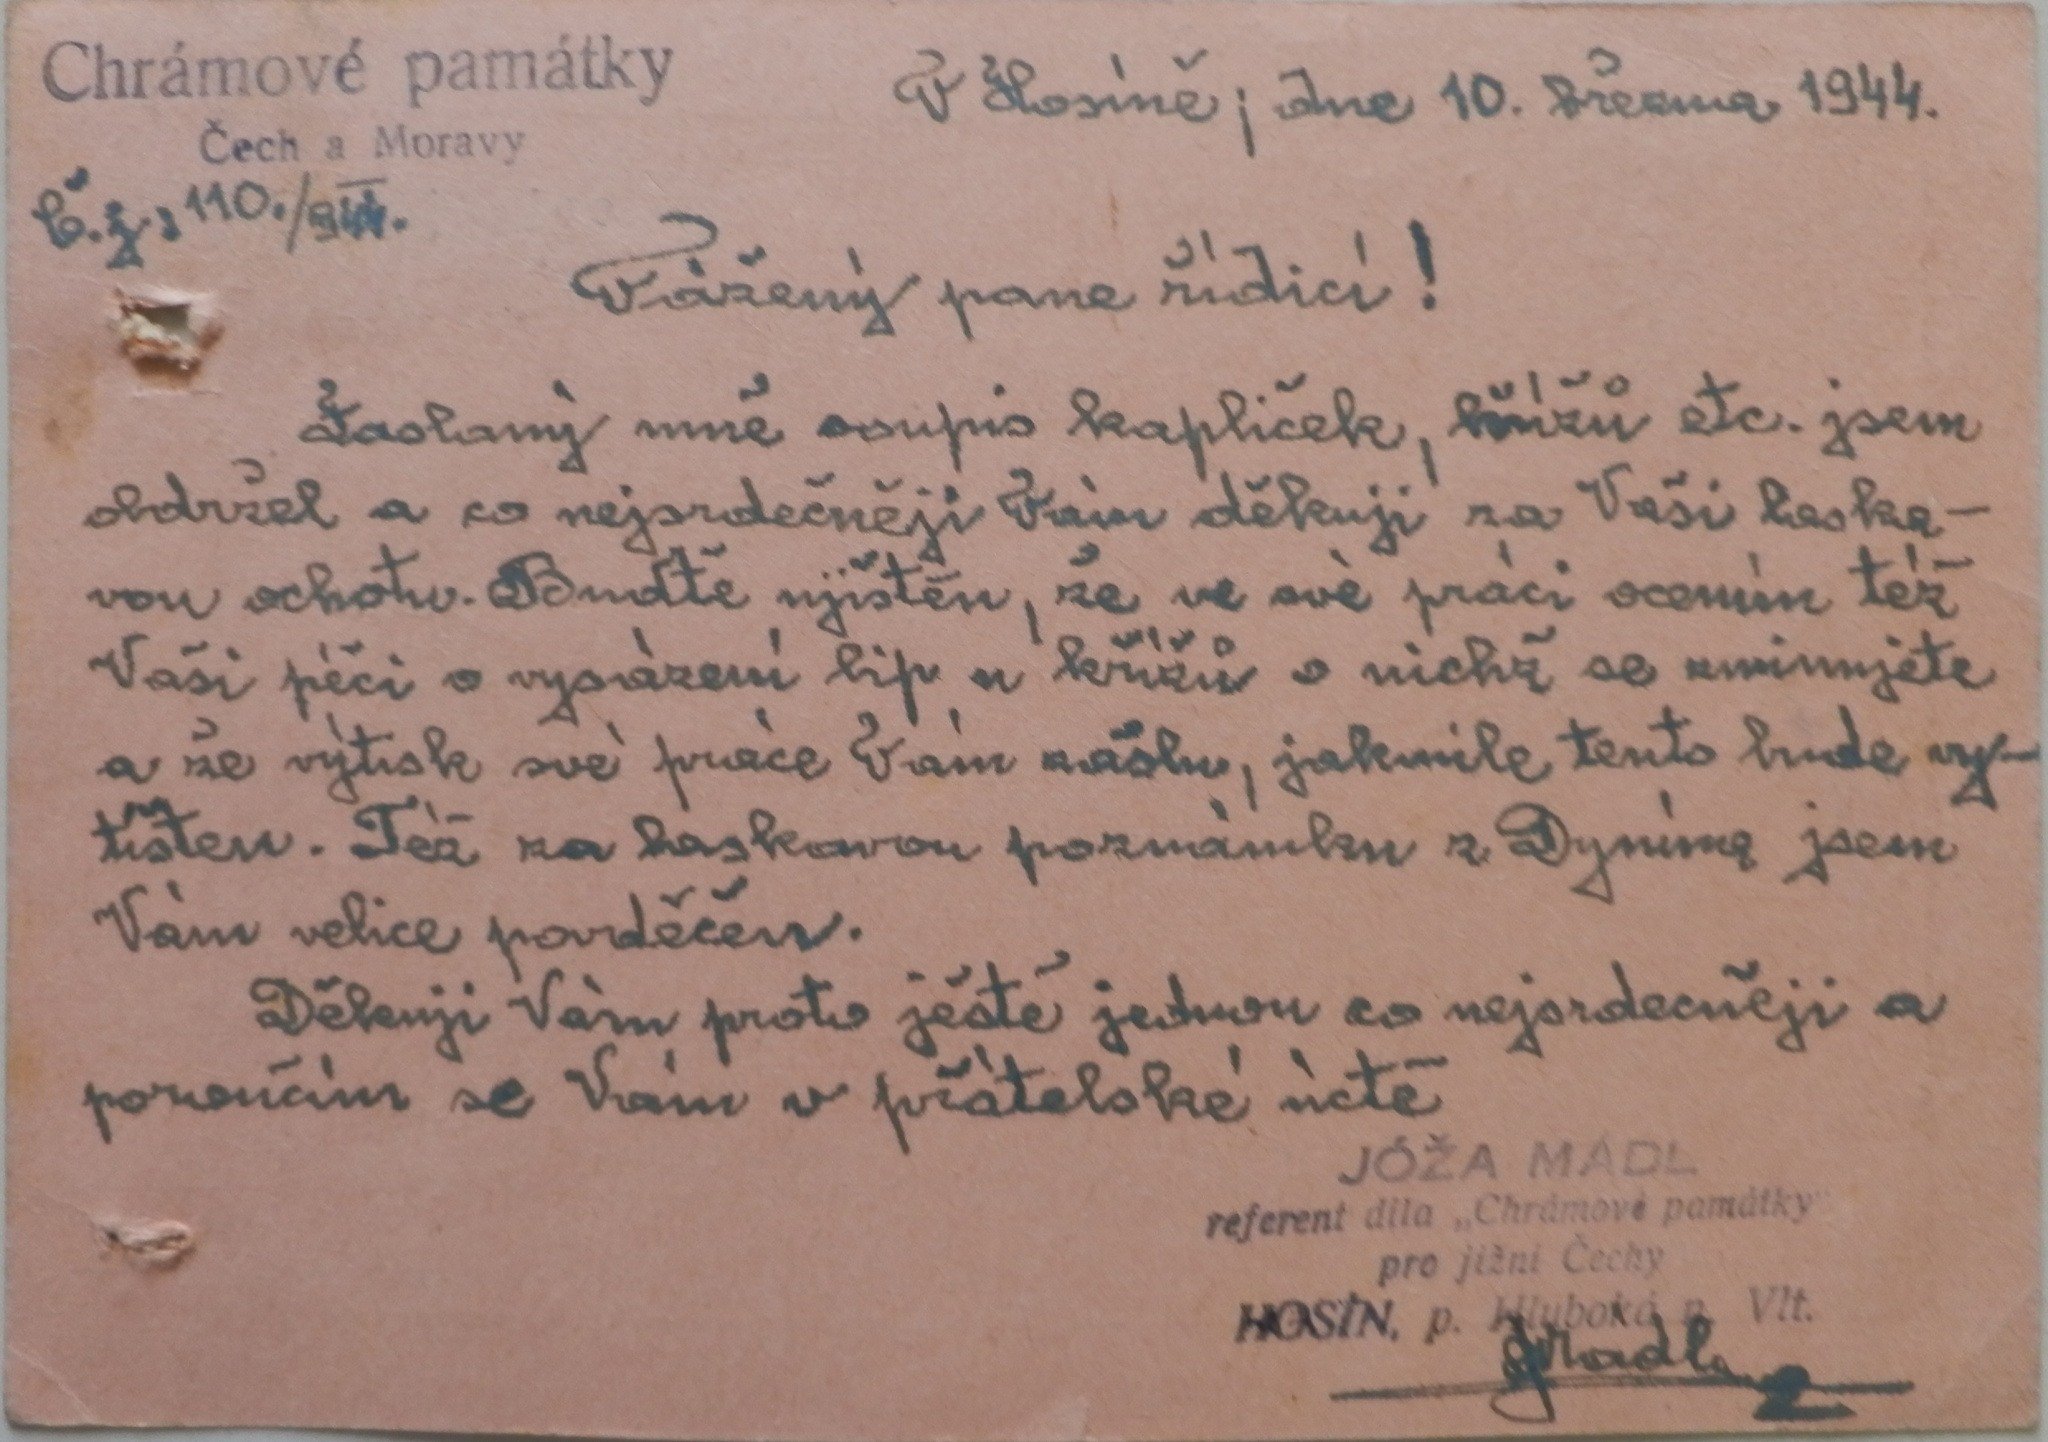 Chrámové památky
Čech a Moravy
V Hosíně, dne 10. března 1944.
Č.j.: 110./944.
Vážený pane řídící!
Zaslaný mně soupis kapliček, křížů etc. jsem
obdržel a co nejsrdečněji Vám děkuji za Vaši laska-
vou ochotu. Buďte ujištěn, že ve své práci ocením též
Vaši péči o vysázení lip u křížů o nichž se zmiňujete
a že výtisk své práce Vám zašlu, jakmile tento bude vy-
tištěn. Též za laskavou poznámku z Dynína jsem
Vám velice povděčen.
Děkuji Vám proto ještě jednou co nejsrdečněji a
poroučím se Vám v přátelské úctě
JÓŽA MÁDL
referent díla „Chrámové památky"
pro jižní Čechy
HOSÍN, p. Hluboká n. Vlt.
JMádl